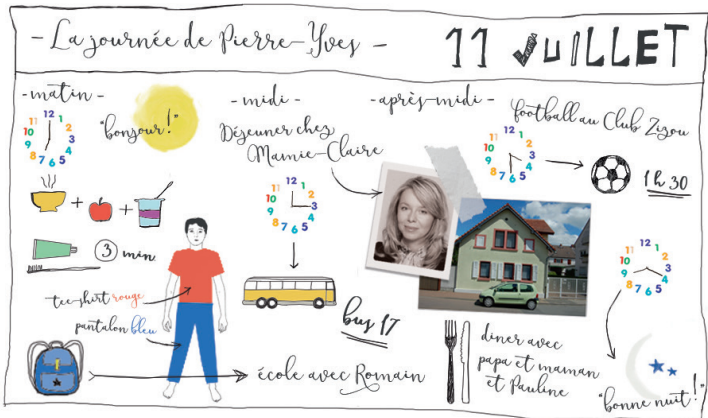 - La journée de Pierre-Yves -
11 JUILLET
- matin -
"bonjour!"
12 1 2 3 4 5 6 7 8 9 10 11
3 min
tee-shirt rouge
pantalon bleu
- midi -
Déjeuner chez
Mamie-Claire
12 1 2 3 4 5 6 7 8 9 10 11
bus 17
école avec Romain
- après-midi -
football au Club Zizou
12 1 2 3 4 5 6 7 8 9 10 11
1 h 30
12 1 2 3 4 5 6 7 8 9 10 11
diner avec
papa et maman
et Pauline
"bonne nuit!"